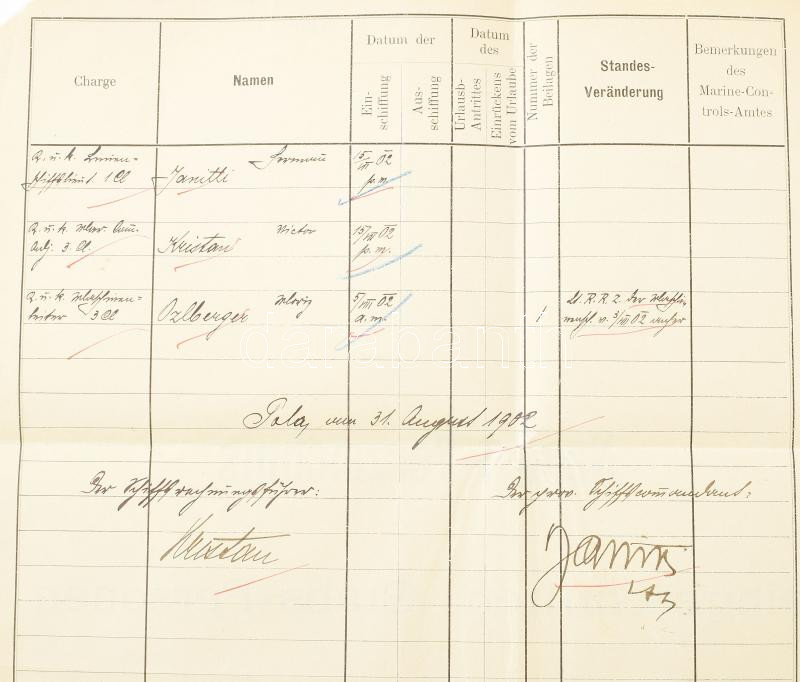 Charge
Namen
Datum der
Ein-
schiffung
Aus-
schiffung
Datum
des
Urlaubs-
Antrittes
Einrückens
vom Urlaube
Nummer der
Beilagen
Standes-
Veränderung
Bemerkungen
des
Marine-Con-
trols-Amtes
K. u. k. Linien-
schiffslieut. 1 Cl
Janitti
15/VIII 02
p. m.
K. u. k. Mar.
Adj. 3. Cl.
Kristan Victor
15/VIII 02
p. m.
K. u. k. Maschinen-
leiter 3 Cl
Ozlberger Moriz
5/VIII 02
a. m.
1
der
v. 3/VIII 02
Pola, am 31. August 1902
Der Schiffsrechnungsführer:
Der prov. Schiffscommandant:
Kristan
darabanth